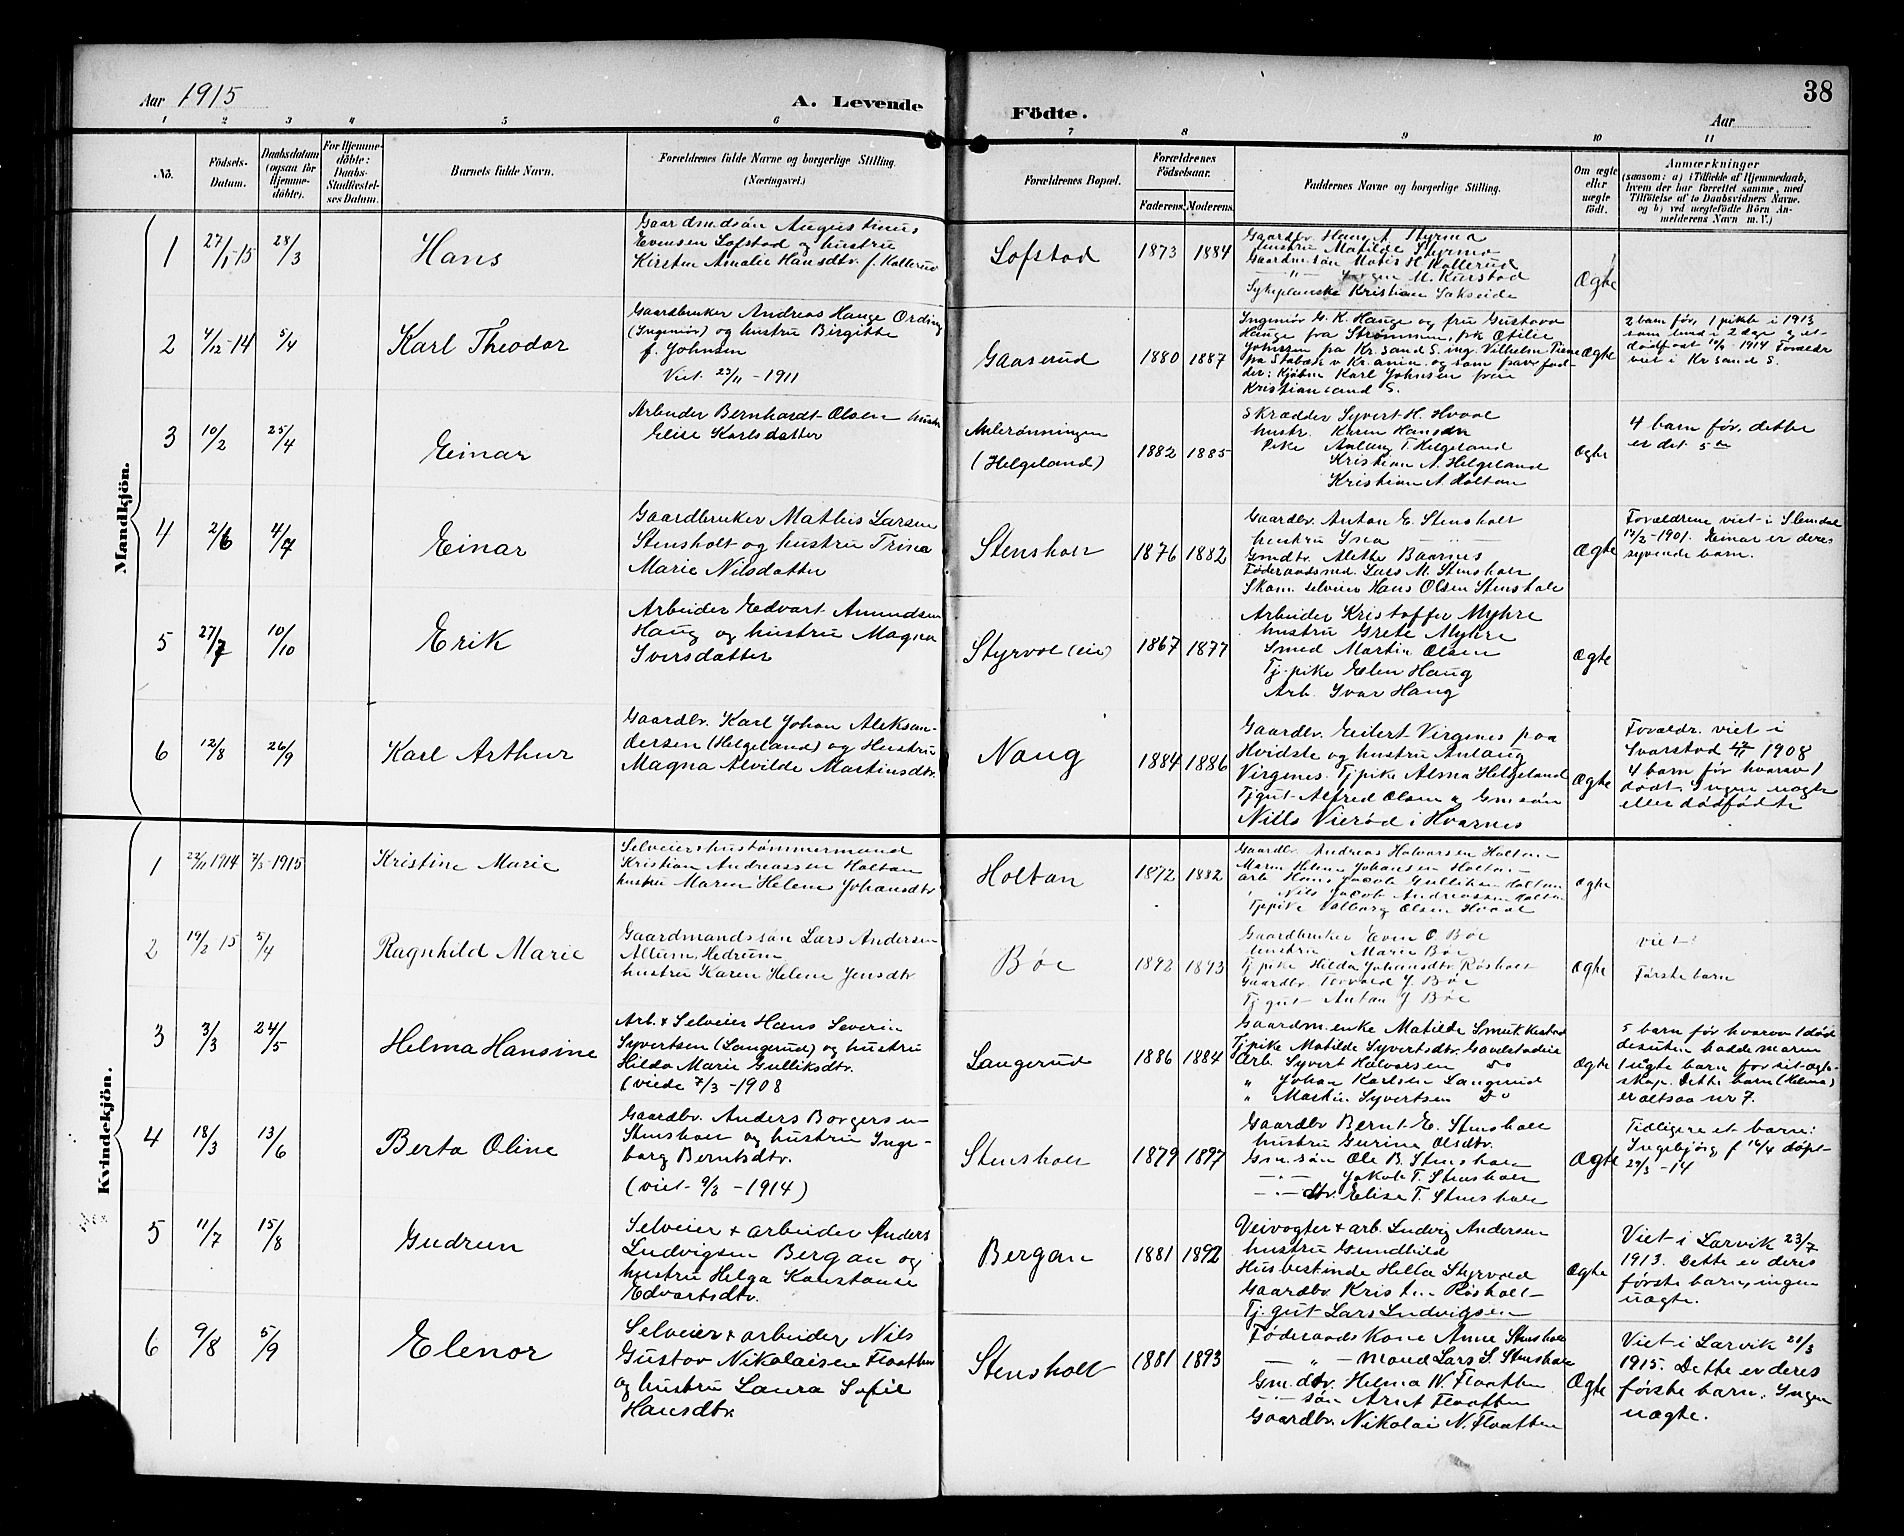 Aar 1915
A. Levende
Födte.
38
Aar
1 2 3 4 5 6 7 8 9 10 11
No.
Födsels-
Datum.
Daabsdatum
(ogsaa for
Hjemme-
döbte).
For Hjemme-
döbte:
Daabs-
Stadfæstel-
ses Datum.
Barnets fulde Navn.
Forældrenes fulde Navne og borgerlige Stilling.
(Næringsvei.)
Forældrenes Bopæl.
Forældrenes
Födselsaar.
Faderens. Moderens.
Faddernes Navne og borgerlige Stilling.
Om ægte
eller
uægte
födt.
Anmærkninger
(saasom: a) i Tilfælde af Hjemmedaab,
hvem der har forrettet samme, med
Tilföielse af to Daabsvidners Navne.
og b) ved uægtefödte Börn An-
melderens Navn m. V.)
Mandkjön.
1
27/1-15
28/3
Hans
Gaardmdsøn Augustinus
Evensen Lofstad og hustru
Kirsten Amalie Hansdtr. f. Kallerud
Lofstad
1873 1884
Gaardbr. Hans A. Styrmo
hustru Matilde Styrmo
Gaardm.søn Mathis H. Kallerud
Sykepleierske Kristian Sakseide
Ægte
2
4/12-14
5/4
Karl Theodor
Gaardbruker Andreas Hauge Ording
(Ingeniör) og hustru Birgitte
f. Johnsen
Viet 23/11-1911
Gaaserud
1880 1887
Ingeniör G. K. Hauge og fru Gustava
Hauge fra Strømmen, pk. Otilie
Johnsen fra Kr.sand S. ing. Vilhelm
fra Stabæk v. Kr.ania og som fravr. fad-
der: Kjöbm. Karl Johnsen fra
Kristiansand S.
Ægte
2 barn før, 1 pikke i 1913
som levde i 2 dage og et
dødfødt 1914 Forældr
viet i Kr.sand S.
3
10/2
25/4
Einar
Arbeider Bernhardt Olsen hustru
Elise Karlsdatter
Milerønningen
(Helgeland)
1882 1885
Skrædder Syvert H. Hvaal
hustr. Karen Hansdtr
Pike Anlaug T. Helgeland
Kristian A. Helgeland
Kristian A. Holtan
Ægte
4 barn før, dette
er det 5te
4
2/6
4/7
Einar
Gaardbruker Mathis Larsen
Stensholt og hustru Trina
Marie Nilsdatter
Stensholt
1876 1882
Gaardbr. Anton E. Stensholt
hustru Ina — " —
Gmdtr. Alette Baarnes
Föderaadsmd. Lars M. Stensholt
Skom. selveier Hans Olsen Stensholt
Ægte
Forældrene viet i Slemdal
1901. Einar er deres
syvende barn.
5
27/7
10/10
Erik
Arbeider Edvart Amundsen
Haug og hustru Magna
Iversdatter
Styrvol (eie)
1867 1877
Arbeider Kristoffer Myhre
hustru Grete Myhre
Smed Martin Olsen
Tj.pike Elen Haug
Arb. Ivar Haug
Ægte
6
12/8
26/9
Karl Arthur
Gaardbr. Karl Johan Aleksan-
dersen (Helgeland) og Hustru
Magna Alvilde Martinsdtr.
Naug
1884 1886
Gaardbr. Eilert Virgenes paa
Hvidste og hustru Anlaug
Virgenes. Tjpike Alma Helgeland
Tjgut Alfred Olsen og Gmsøn
Nills Vierød i Hvarnes
Ægte
Forældr. viet i
Svarstad 1908
4 barn før hvorav 1
dødt. Ingen uægte
eller dødfødte
Kvindekjön.
1
22/11 1914
7/3-1915
Kristine Marie
Selveier hustømmermand
Kristian Andreassen Holtan
hustru Maren Helene Johansdtr.
Holtan
1872 1882
Gaardbr. Andreas Halvorsen Holtan
Maren Helene Johansen Holtan
Arb. Hans Jacob Gulliksen Holtan
" Nils Jacob Andreassen Holtan
Tjpike Valborg Olsen Hvaal
Ægte
2
14/2 15
5/4
Ragnhild Marie
Gaardmandssøn Lars Andersen
Allum, Hedrum
hustru Karen Helene Jensdtr.
Bøe
1892 1893
Gaardbruker Even O. Bøe
hustru Marie Bøe
Tj.pike Hilda Johansdtr. Røsholt
Gaardbr. Torvald J. Bøe
Tj.gut Anton J. Bøe
Ægte
viet
Første barn
3
3/3
24/5
Helma Hansine
Arb. + Selveier Hans Severin
Syvertsen (Langerud) og hustru
Hilda Marie Gulliksdtr.
(viede 7/3-1908
Langerud
1886 1884
Gaardm.enke Matilde
Tjpike Matilde Syvertsdtr. Gavelstadeie
Arb. Syvert Halvorsen Do
" Johan Karlsen Langerud
" Martin Syvertsen Do
Ægte
5 barn før hvorav 1 død
desuten hadde moren
1 uægte barn før sit ægte-
skap. Dette barn (Helma)
er altsaa nr 7.
4
18/3
13/6
Berta Oline
Gaardbr. Anders Borgersen
Stensholt og hustru Inge-
borg Berntsdtr.
(viet 9/3-1914)
Stensholt
1879 1897
Gaardbr Bernt E. Stensholt
hustru Gurine Olsdtr.
Gm.søn Ole B. Stensholt
— " — Jakob T. Stensholt
— " — dtr. Elise T. Stensholt
Ægte
Tidligere et barn:
Ingebjörg f 14/4 døpt
-14
5
11/7
15/8
Gudrun
Selveier + arbeider Anders
Ludvigsen Bergan og
hustru Helga Konstanse
Edvartsdtr.
Bergan
1881 1892
Veivogter + arb. Ludvig Andersen
hustru Gunhild
Husbestinde Hella Styrvold
Gaardbr. Kristen Røsholt
Tj.gut Lars Ludvigsen
Ægte
Viet i Larvik 23/7
1913. Dette er deres
første barn, ingen
uægte.
6
9/8
5/9
Elenor
Selveier + arbeider Nils
Gustav Nikolaisen Flaatten
og hustru Laura Sofie
Hansdtr.
Stensholt
1881 1893
Føderaads Kone Anne Stensholt
— " — Mand Lars S. Stensholt
Gm.dtr. Helma N. Flaatten
— " — søn Arnt Flaatten
Gaardbr. Nikolai N. Flaatten
Ægte
Viet i Larvik 21/3
1915. Dette er deres
første barn. Ingen
uægte.